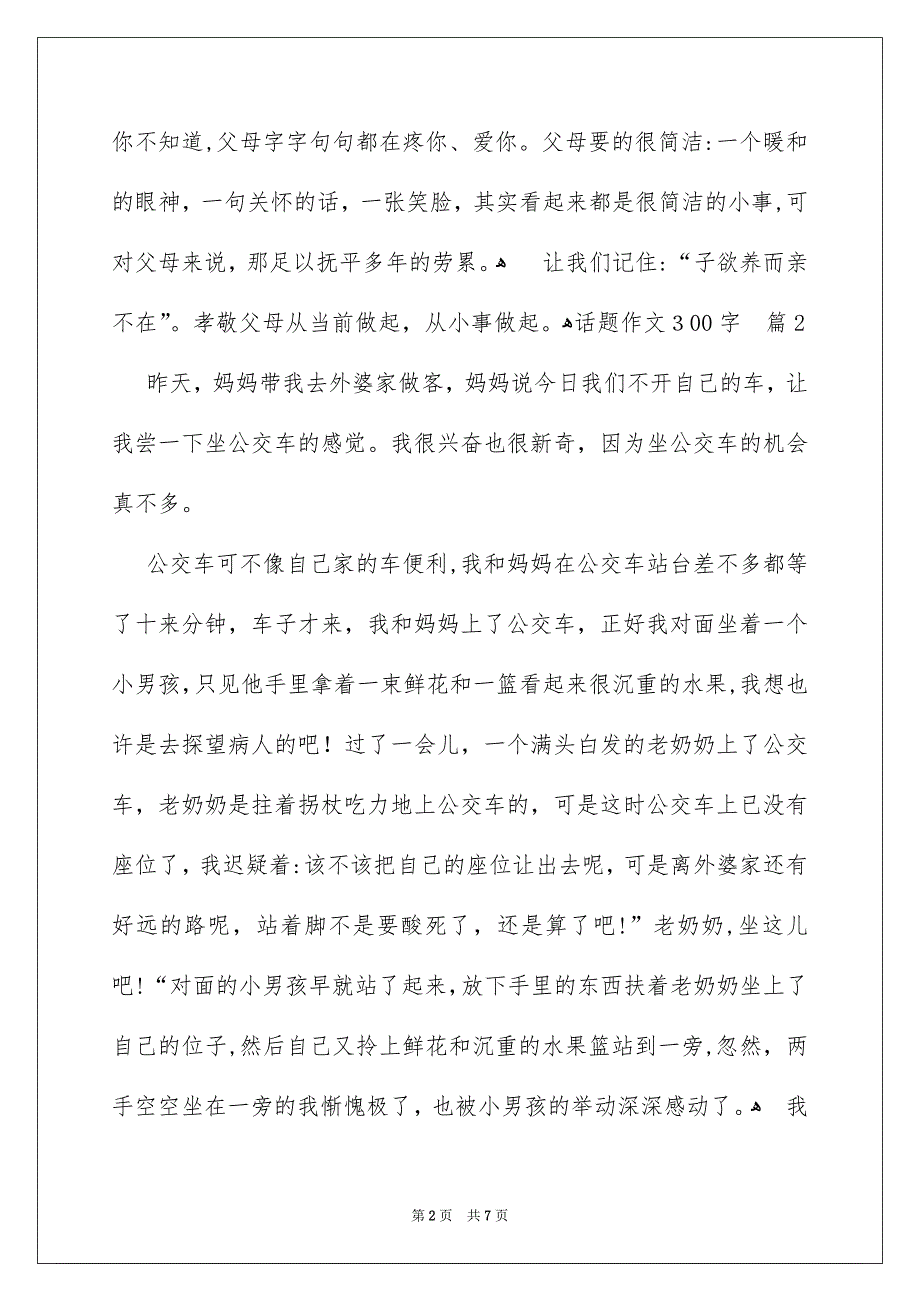 你不知道,父母字字句句都在疼你、爱你。父母要的很简洁:一个暖和
的眼神，一句关怀的话，一张笑脸，其实看起来都是很简洁的小事,可
对父母来说，那足以抚平多年的劳累。ﻫ 让我们记住:“子欲养而亲
不在”。孝敬父母从当前做起，从小事做起。ﻫ话题作文300字 篇2
昨天，妈妈带我去外婆家做客，妈妈说今日我们不开自己的车，让
我尝一下坐公交车的感觉。我很兴奋也很新奇，因为坐公交车的机会
真不多。
公交车可不像自己家的车便利,我和妈妈在公交车站台差不多都等
了十来分钟，车子才来，我和妈妈上了公交车，正好我对面坐着一个
小男孩,只见他手里拿着一束鲜花和一篮看起来很沉重的水果,我想也
许是去探望病人的吧！过了一会儿，一个满头白发的老奶奶上了公交
车，老奶奶是拄着拐杖吃力地上公交车的，可是这时公交车上已没有
座位了，我迟疑着:该不该把自己的座位让出去呢，可是离外婆家还有
好远的路呢，站着脚不是要酸死了，还是算了吧!”老奶奶,坐这儿
吧!“对面的小男孩早就站了起来,放下手里的东西扶着老奶奶坐上了
自己的位子,然后自己又拎上鲜花和沉重的水果篮站到一旁,忽然，两
手空空坐在一旁的我惭愧极了，也被小男孩的举动深深感动了。ﻫ 我
第2页 共7页